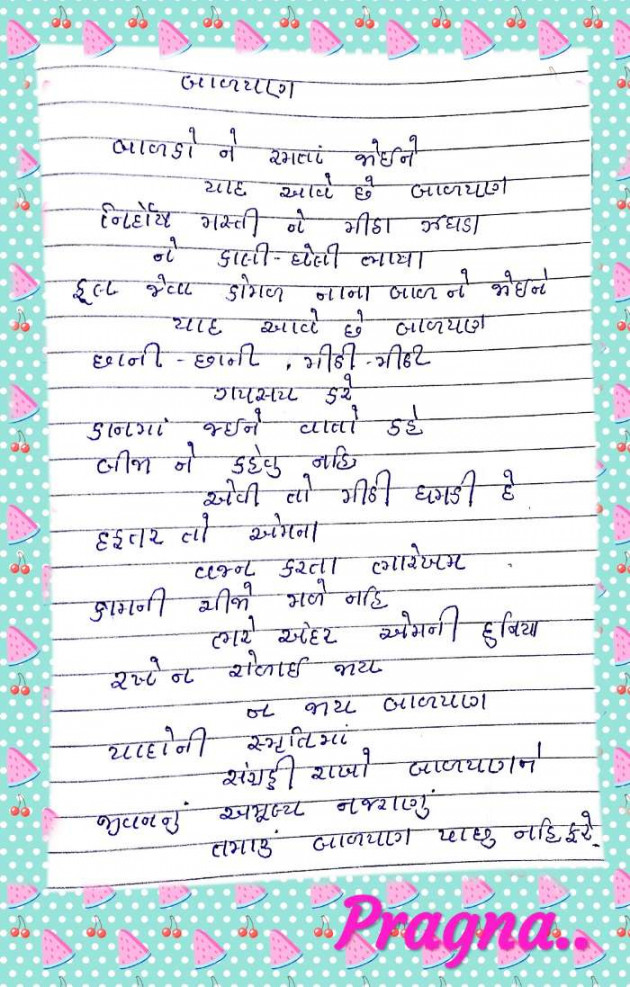 બાળપણ
બાળકો ને રમતાં જોઈને
યાદ આવે છે બાળપણ
નિર્દોષ મસ્તી ને મીઠા ઝઘડા
ને કાલી-ઘેલી ભાષા
ફૂલ જેવા કોમળ નાના બાળ ને જોઈને
યાદ આવે છે બાળપણ
છાની-છાની, મીઠી-મીઠી
ગપસપ કરે
કાનમાં જઈને વાતો કહે
બીજા ને કહેવુ નહિ
એવી તો મીઠી ધમકી દે
દફતર તો એમના
વજન કરતા ભારેખમ
કામની ચીજો મળે નહિ
ભરે અંદર એમની દુનિયા
રખે ન રોળાઈ જાય
ન જાય બાળપણ
યાદોની સ્મૃતિમાં
સંગ્રહી રાખો બાળપણને
જીવનનું અમૂલ્ય નજરાણું
તમારું બાળપણ પાછુ નહિ ફરે.
Pragna..